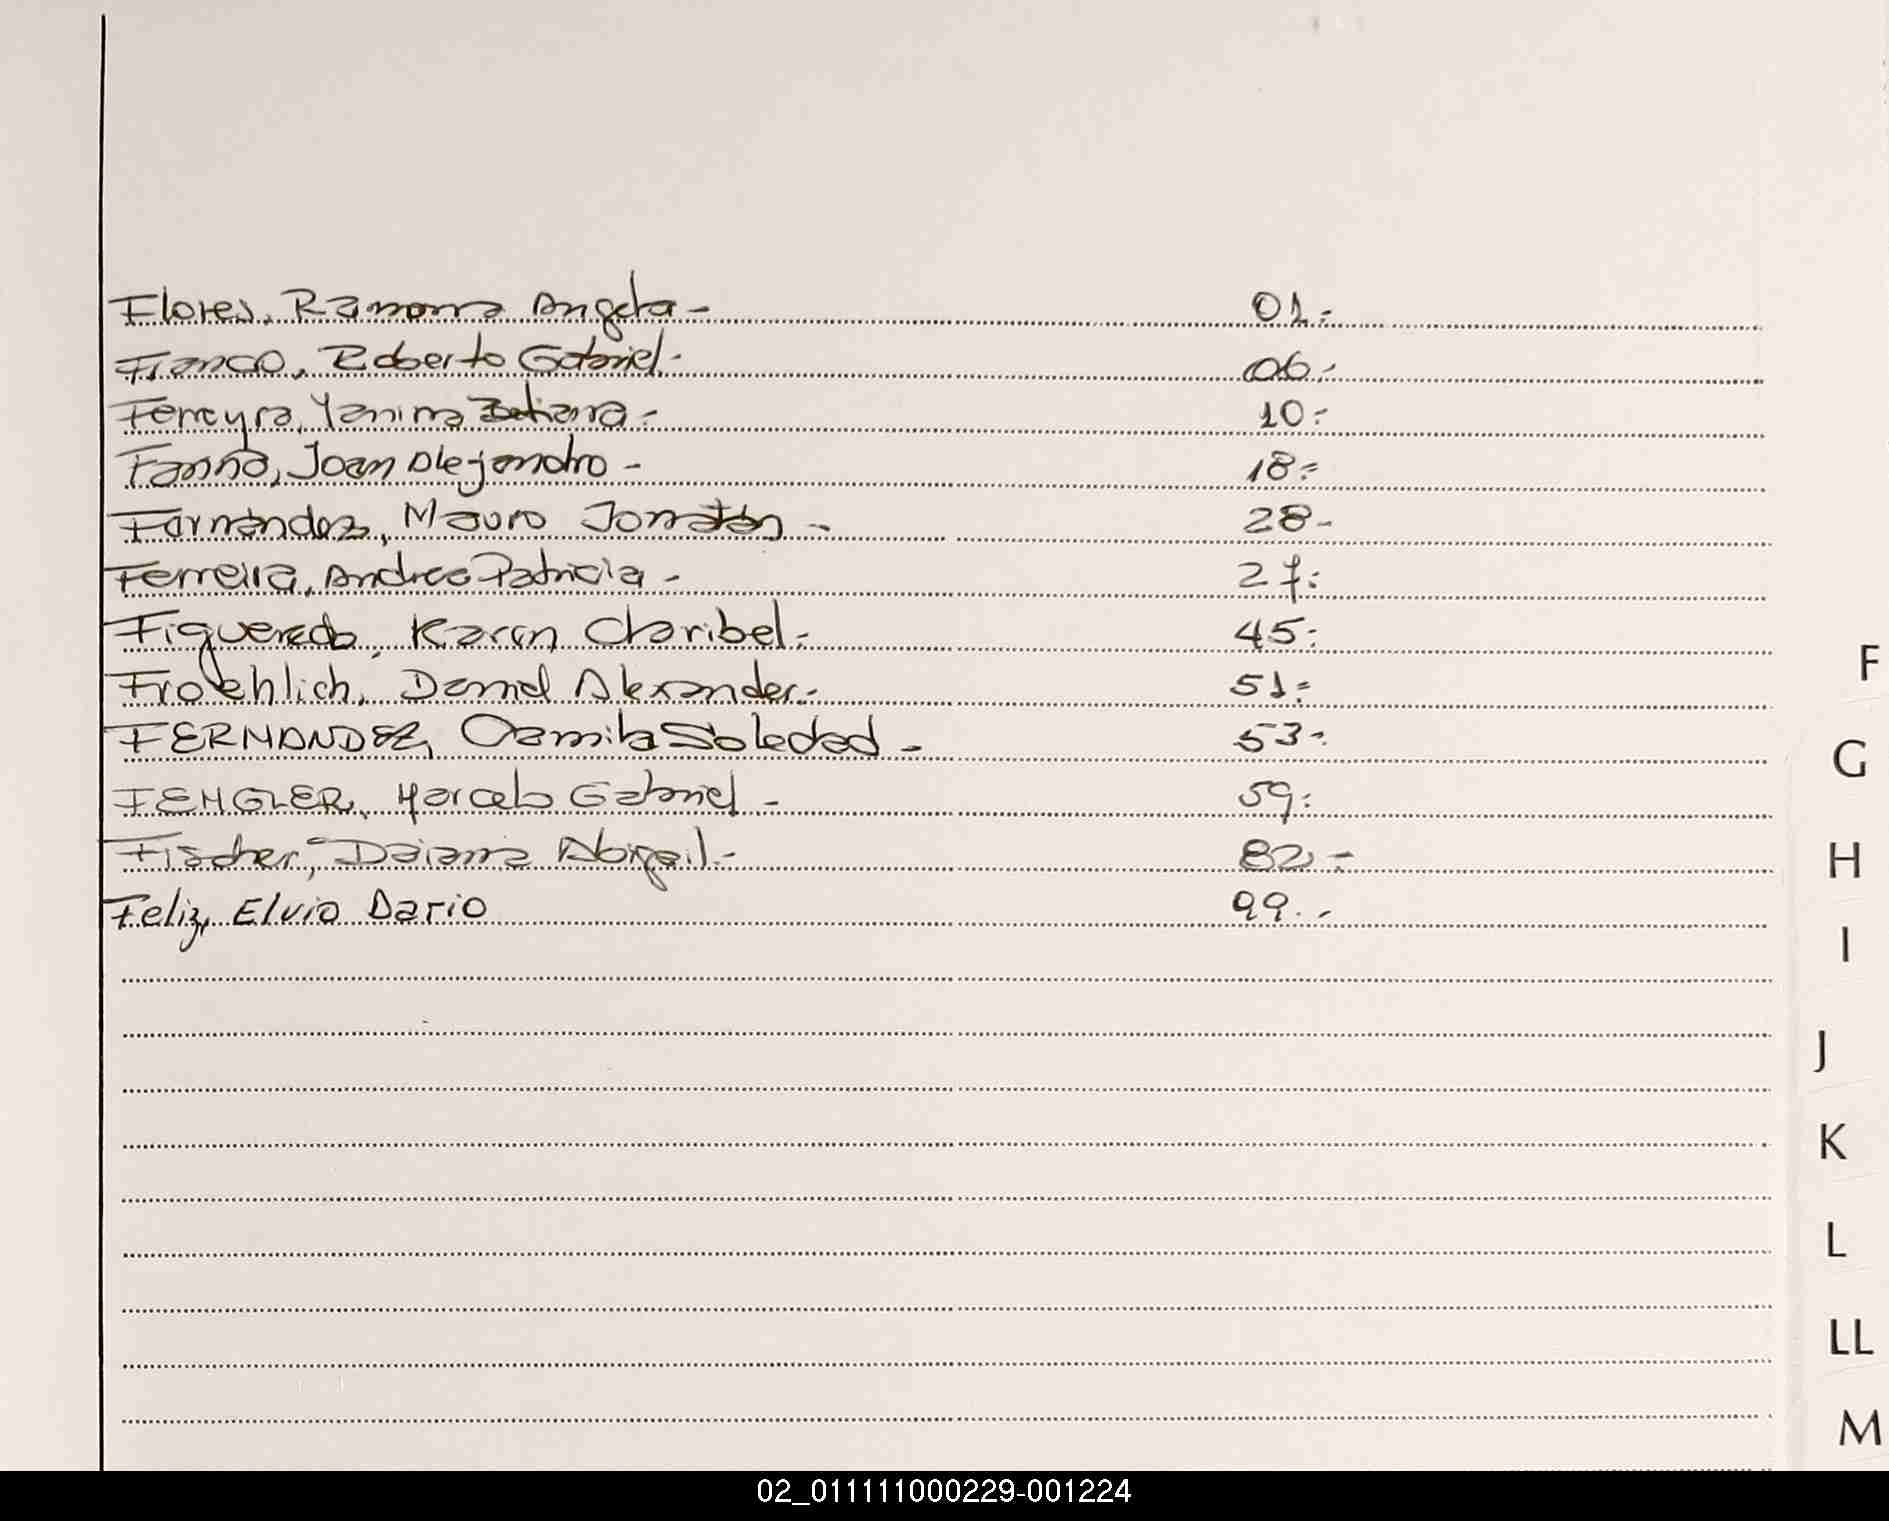 Flores, Ramona Angela - 01.-
Franco, Roberto Gabriel.- 06.-
Ferreyra, Yanina Tatiana.- 10.-
Joan Alejandro - 18.-
Fernández, Mauro Jonatán - 28-
Ferreira, Andrea Patricia - 27.-
Figueredo, Karen Claribel.- 45.-
Froehlich, Daniel Alexander.- 51.-
FERNANDEZ, Camila Soledad - 53-.
FENGLER, Marcelo Gabriel - 59.-
Fischer, Daiana Abigail.- 82.-
Feliz, Elvio Dario 99.-
F
G
H
I
J
K
L
LL
M
02_011111000229-001224